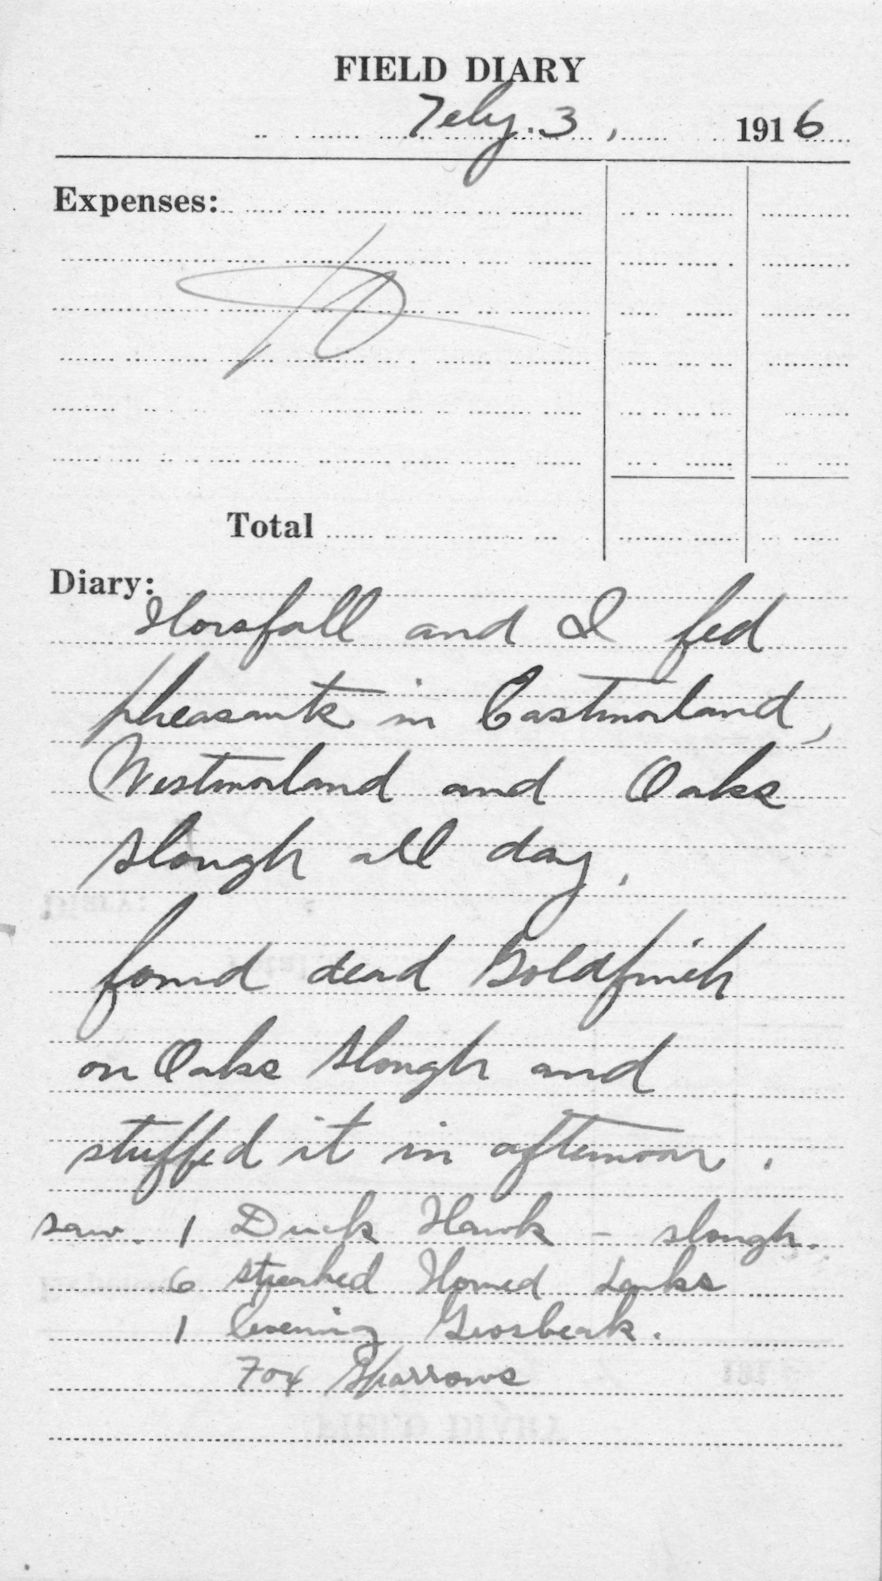 FIELD DIARY
Feby. 3, 1916
Expenses:
Total
Diary:
Horsfall and I fed
pheasants in Eastmorland,
Westmorland and Oaks
slough all day.
found dead Goldfinch
on Oaks slough and
stuffed it in afternoon.
saw. 1 Duck Hawk - slough.
6 streaked Horned Larks
1 Evening Grosbeak.
Fox Sparrows